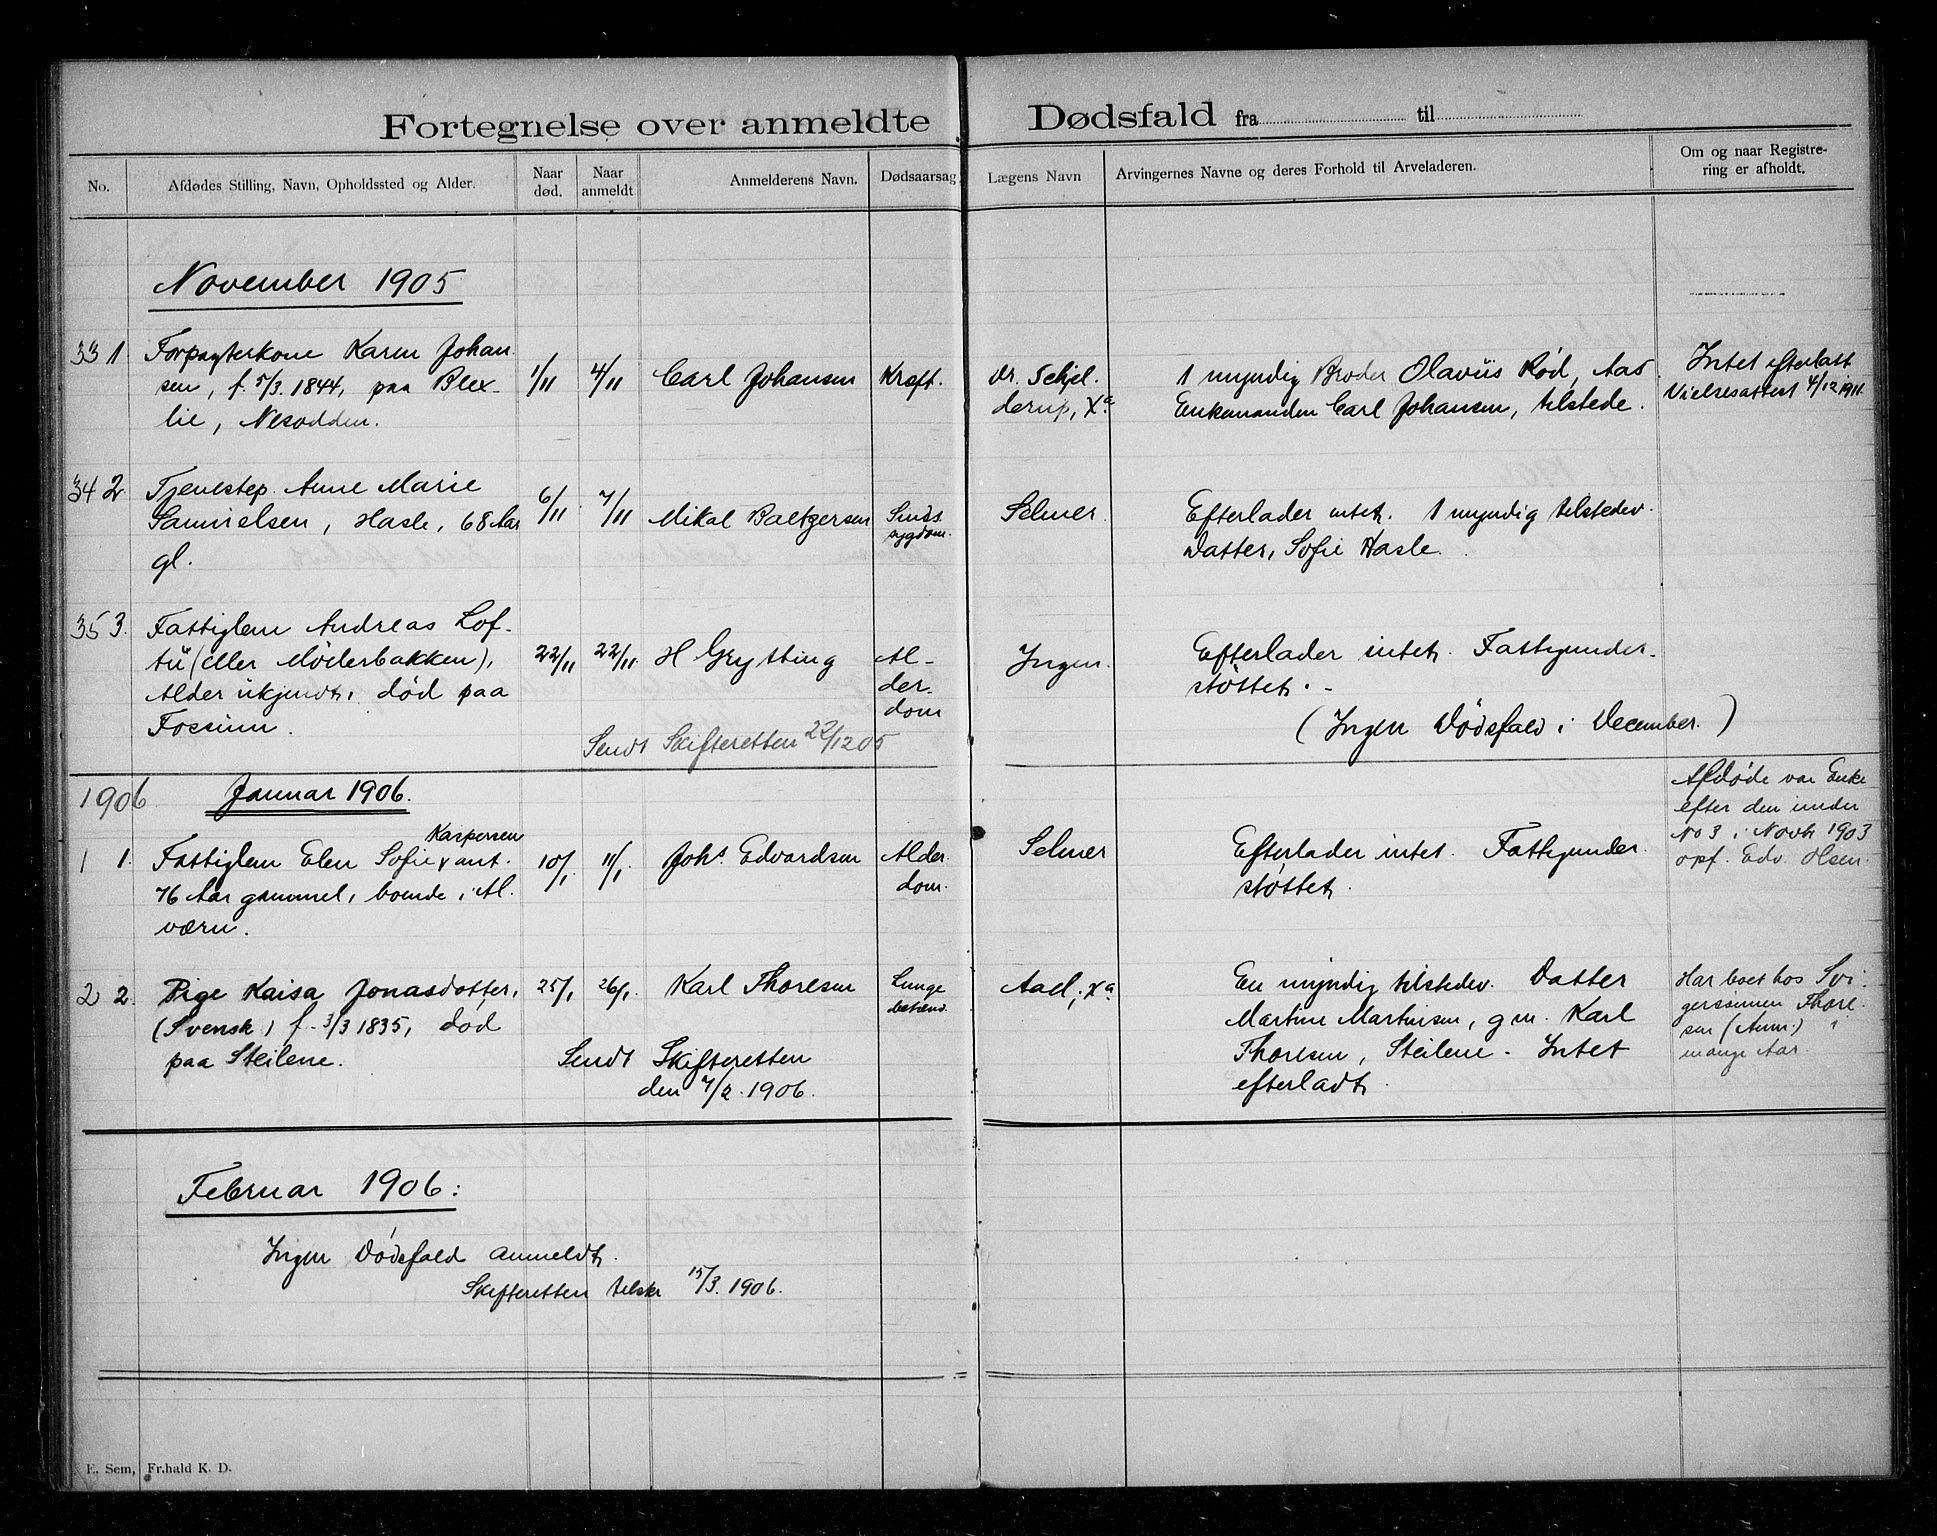 Fortegnelse over anmeldte Dødsfald fra til
No. Afdødes Stilling, Navn, Opholdssted og Alder. Naar død. Naar anmeldt Anmelderens Navn. Dødsaarsag Lægens Navn Arvingernes Navne og deres Forhold til Arveladeren. Om og naar Registrering er afholdt.
November 1905
33 1. Forpagterkone Karen Johan-
sen, f. 5/3. 1844, paa Blex-
lie, Nesodden.
1/11 4/11 Carl Johansen Kræft.
Dr. Schjel-
derup, Xa
1 myndig Broder Olaviis Rød, Aas
Enkemanden Carl Johansen, tilstede.
Intet efterlatt
Vielsesattest 4/12 1911.
34 2. Tjenestep. Anne Marie
Samuelsen, Hasle, 68 Aar
gl.
6/11 7/11 Mikal Baltzersen Sinds
sygdom.
Selmer
Efterlader intet. 1 myndig tilstedev.
Datter, Sofie Hasle.
35 3. Fattiglem Andreas Lof-
tu (eller Møllerbakken),
Alder ukjendt, død paa
Fossum.
22/11 22/11 H Grytting Al-
der-
dom
Ingen.
Efterlader intet. Fattigunder-
støttet. -
(Ingen Dødsfald i December.)
Sendt Skifteretten 22/12 05
1906 Januar 1906.
1 1. Fattiglem Elen Sofie x ant.
Kaspersen
76 Aar gammel, boende i Al-
værn.
10/1 11/1 Johs. Edvardsen Alder
dom.
Selmer
Efterlader intet. Fattigunder-
støttet.
Afdøde var Enke
efter den under
No 3 i Novb 1903
opf. Edv. Olsen.
2 2. Pige Kaisa Jonasdotter,
(Svensk) f. 3/3 1835, død
paa Steilene.
25/1 26/1 Karl Thoresen Lunge
betænd.
Aael, Xa
En myndig tilstedev. Datter
Martine Martinsen, gm. Karl
Thoresen, Steilene. Intet
efterladt.
Har boet hos Svi-
gersønnen Thore-
sen (Anm.) i
mange Aar.
Sendt Skifteretten
den 7/2. 1906.
Februar 1906:
Ingen Dødsfald anmeldt.
Skifteretten tilskr 15/3. 1906.
E. Sem, Fr.hald K. D.